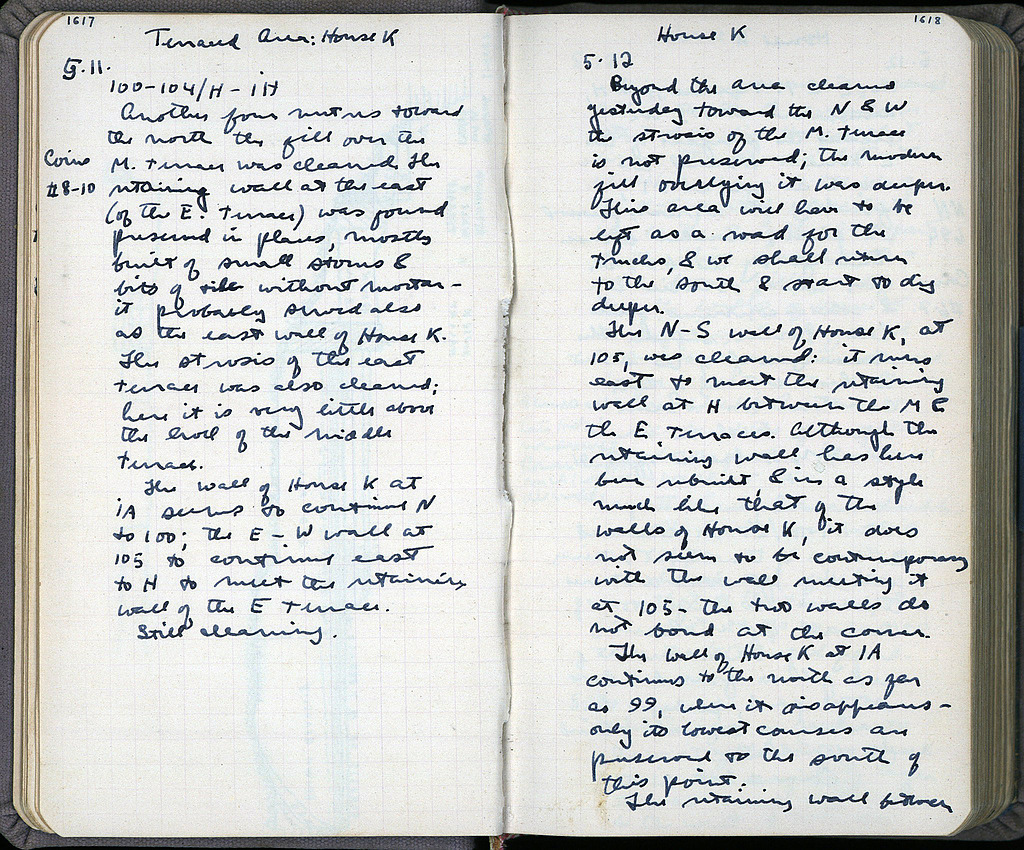 1617
Terraced Area: House K
5.11.
100-104/H-IH
Another four metres toward
the north the fill over the
Coins
M. Terrace was cleaned. The
#8-10
retaining wall at the east
(of the E. Terrace) was found
preserved in places, mostly
built of small stones &
bits of tile without mortar -
it probably served also
as the east wall of House K.
The strosis of the east
terrace was also cleaned;
here it is very little above
the level of the middle
terrace.
The wall of House K at
IA seems to continue N
to 100; the E-W wall at
105 to continue east
to H to meet the retaining
wall of the E Terrace.
Still cleaning.
1618
House K
5.12
Beyond the area cleaned
yesterday toward the N & W
the strosis of the M. Terrace
is not preserved; the modern
fill overlying it was deeper.
This area will have to be
left as a road for the
trucks, & we shall return
to the south & start to dig
deeper.
The N-S wall of House K, at
105, was cleaned: it runs
east to meet the retaining
wall at H between the M &
the E. Terraces. Although the
retaining wall has here
been rebuilt, & in a style
much like that of the
walls of House K, it does
not seem to be contemporary
with the wall meeting it
at 105 - the two walls do
not bond at the corner.
The wall of House K at IA
continues to the north as far
as 99, where it disappears -
only its lowest courses are
preserved to the south of
this point.
The retaining wall between